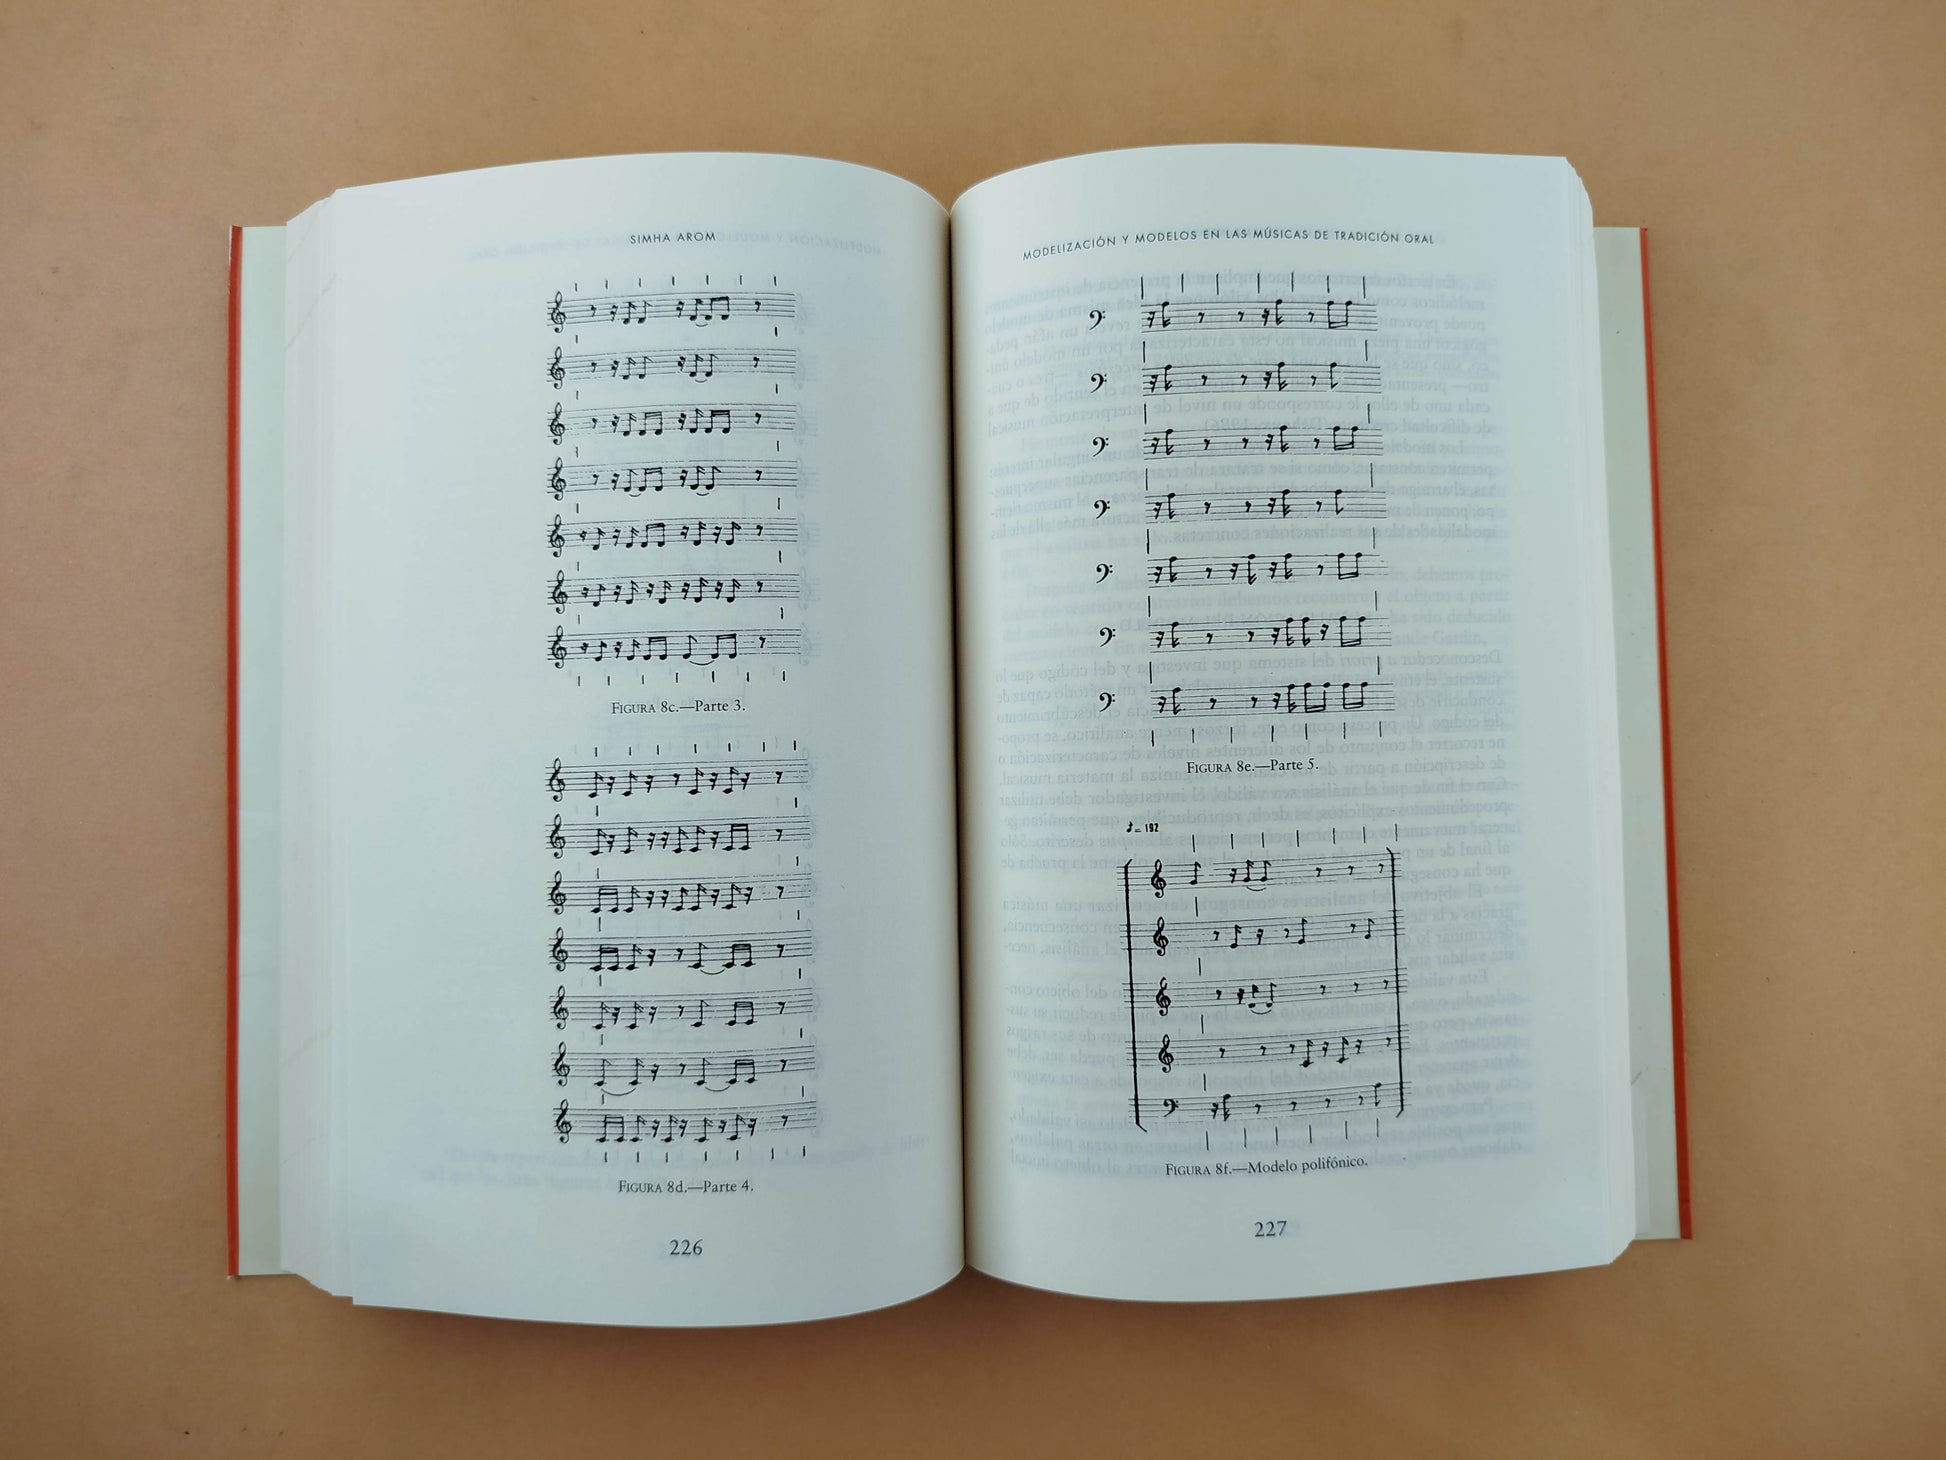 SIMHA AROM
FIGURA 8c.—Parte 3.
FIGURA 8d.—Parte 4.
226
MODELIZACIÓN Y MODELOS EN LAS MÚSICAS DE TRADICIÓN ORAL
FIGURA 8e.—Parte 5.
= 192
FIGURA 8f.—Modelo polifónico.
227